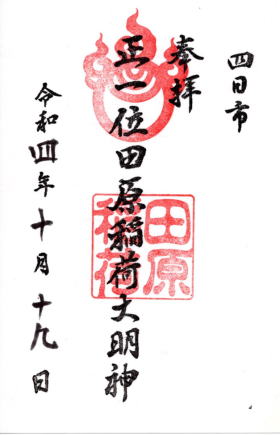 四日市
奉拝
正一位田原稲荷大明神
田原
稲荷
令和四年十月十九日